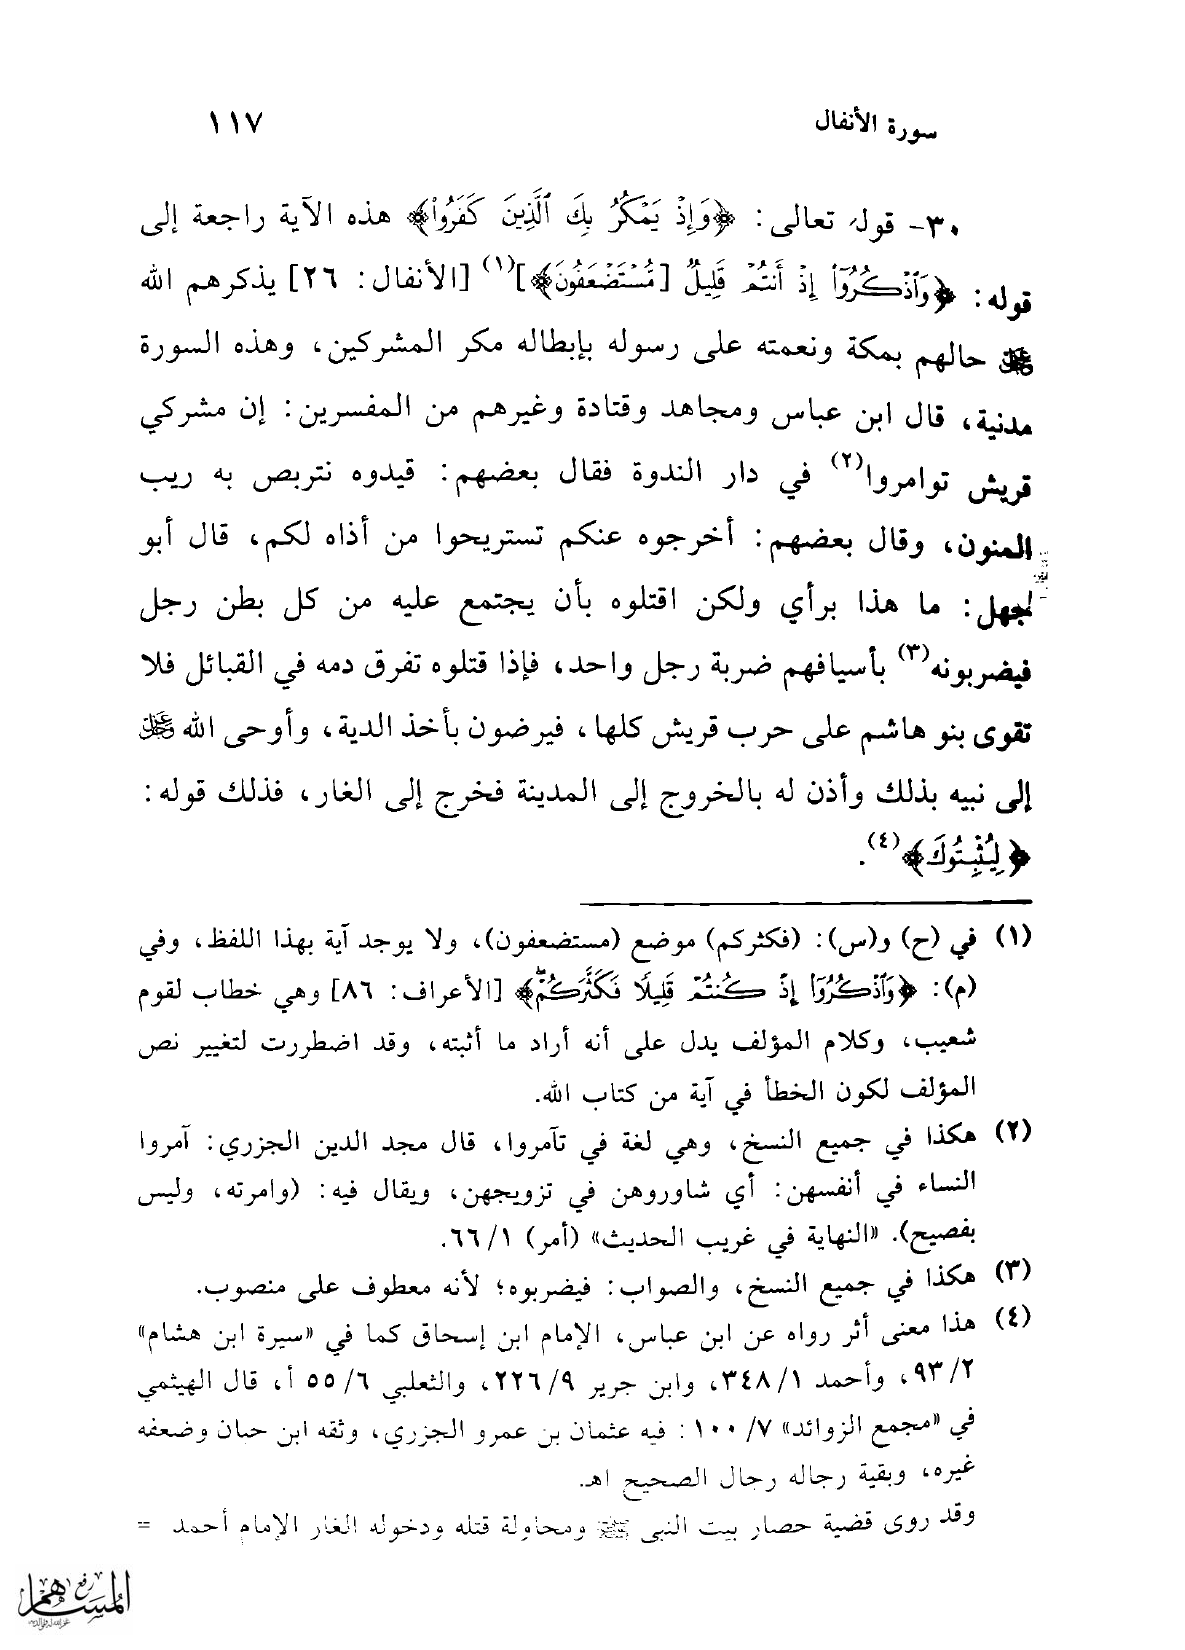 سورة الأنفال ١١٧
٣٠- قوله تعالى: ﴿وَإِذْ يَمْكُرُ بِكَ الَّذِينَ كَفَرُوا﴾ هذه الآية راجعة إلى
قوله: ﴿وَاذْكُرُوا إِذْ أَنتُمْ قَلِيلٌ [مُّسْتَضْعَفُونَ﴾](١) [الأنفال: ٢٦] يذكرهم الله
حالهم بمكة ونعمته على رسوله بإبطاله مكر المشركين، وهذه السورة
مدنية، قال ابن عباس ومجاهد وقتادة وغيرهم من المفسرين: إن مشركي
قريش توامروا(٢) في دار الندوة فقال بعضهم: قيدوه نتربص به ريب
المنون، وقال بعضهم: أخرجوه عنكم تستريحوا من أذاه لكم، قال أبو
جهل: ما هذا برأي ولكن اقتلوه بأن يجتمع عليه من كل بطن رجل
فيضربونه(٣) بأسيافهم ضربة رجل واحد، فإذا قتلوه تفرق دمه في القبائل فلا
تقوى بنو هاشم على حرب قريش كلها، فيرضون بأخذ الدية، وأوحى الله ﷿
إلى نبيه بذلك وأذن له بالخروج إلى المدينة فخرج إلى الغار، فذلك قوله:
﴿لِيُثْبِتُوكَ﴾(٤).
(١) في (ح) و(س): (فكثركم) موضع (مستضعفون)، ولا يوجد آية بهذا اللفظ، وفي
(م): ﴿وَاذْكُرُوا إِذْ كُنتُمْ قَلِيلًا فَكَثَّرَكُمْ﴾ [الأعراف: ٨٦] وهي خطاب لقوم
شعيب، وكلام المؤلف يدل على أنه أراد ما أثبته، وقد اضطررت لتغيير نص
المؤلف لكون الخطأ في آية من كتاب الله.
(٢) هكذا في جميع النسخ، وهي لغة في تآمروا، قال مجد الدين الجزري: آمروا
النساء في أنفسهن: أي شاوروهن في تزويجهن، ويقال فيه: (وامرته، وليس
بفصيح). «النهاية في غريب الحديث» (أمر) ١/ ٦٦.
(٣) هكذا في جميع النسخ، والصواب: فيضربوه؛ لأنه معطوف على منصوب.
(٤) هذا معنى أثر رواه عن ابن عباس، الإمام ابن إسحاق كما في «سيرة ابن هشام»
٢/ ٩٣، وأحمد ١/ ٣٤٨، وابن جرير ٩/ ٢٢٦، والثعلبي ٦/ ٥٥ أ، قال الهيثمي
في «مجمع الزوائد» ٧/ ١٠٠: فيه عثمان بن عمرو الجزري، وثقه ابن حبان وضعفه
غيره، وبقية رجاله رجال الصحيح اهـ.
وقد روى قضية حصار بيت النبي ﷺ ومحاولة قتله ودخوله الغار الإمام أحمد =
رفع
المساهم